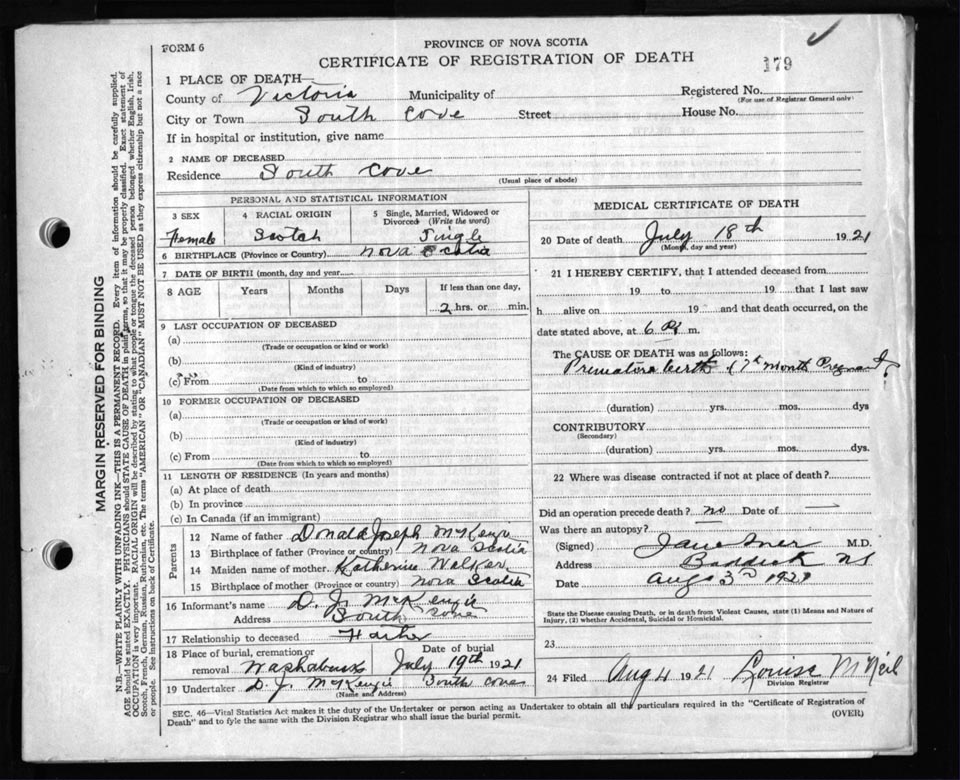 FORM 6
PROVINCE OF NOVA SCOTIA
CERTIFICATE OF REGISTRATION OF DEATH
179
1 PLACE OF DEATH—
County of Victoria Municipality of Registered No.
(For use of Registrar General only)
City or Town South Cove Street House No.
If in hospital or institution, give name
2 NAME OF DECEASED
Residence South Cove
(Usual place of abode)
PERSONAL AND STATISTICAL INFORMATION
3 SEX 4 RACIAL ORIGIN 5 Single, Married, Widowed or Divorced (Write the word)
Female Scotch Single
6 BIRTHPLACE (Province or Country) Nova Scotia
7 DATE OF BIRTH (month, day and year)
8 AGE Years Months Days If less than one day,
2 hrs. or min.
9 LAST OCCUPATION OF DECEASED
(a)
(Trade or occupation or kind of work)
(b)
(Kind of industry)
(c) From to
(Date from which to which so employed)
10 FORMER OCCUPATION OF DECEASED
(a)
(Trade or occupation or kind of work)
(b)
(Kind of industry)
(c) From to
(Date from which to which so employed)
11 LENGTH OF RESIDENCE (In years and months)
(a) At place of death
(b) In province
(c) In Canada (if an immigrant)
Parents
12 Name of father Donald Joseph McKenzie
13 Birthplace of father (Province or country) Nova Scotia
14 Maiden name of mother Katherine Walker
15 Birthplace of mother (Province or country) Nova Scotia
16 Informant's name D. J. McKenzie
Address South Cove
17 Relationship to deceased Father
18 Place of burial, cremation or removal Date of burial
July 19th 1921
19 Undertaker D. J. McKenzie South Cove
(Name and Address)
MEDICAL CERTIFICATE OF DEATH
20 Date of death July 18th 1921
(Month, day and year)
21 I HEREBY CERTIFY, that I attended deceased from
19 to 19 that I last saw
h alive on 19 and that death occurred, on the
date stated above, at 6 m.
The CAUSE OF DEATH was as follows:
Premature birth 7th month
(duration) yrs. mos. dys
CONTRIBUTORY
(Secondary)
(duration) yrs. mos. dys.
22 Where was disease contracted if not at place of death?
Did an operation precede death? no Date of —
Was there an autopsy?
(Signed) M.D.
Address Baddeck NS
Date Aug 3rd 1921
State the Disease causing Death, or in death from Violent Causes, state (1) Means and Nature of
Injury, (2) whether Accidental, Suicidal or Homicidal.
23
24 Filed Aug 4 1921 Louise McNeil
Division Registrar
SEC. 46—Vital Statistics Act makes it the duty of the Undertaker or person acting as Undertaker to obtain all the particulars required in the "Certificate of Registration of
Death" and to fyle the same with the Division Registrar who shall issue the burial permit.
(OVER)
MARGIN RESERVED FOR BINDING
N.B.—WRITE PLAINLY WITH UNFADING INK—THIS IS A PERMANENT RECORD. Every item of information should be carefully supplied.
AGE should be stated EXACTLY. PHYSICIANS should STATE CAUSE OF DEATH in plain terms, so that it may be properly classified. Exact statement of
OCCUPATION is very important. RACIAL ORIGIN will be described by stating to what people or tongue the deceased person belonged whether English, Irish,
Scotch, French, German, Russian, Ruthenian, etc. The terms "AMERICAN" OR "CANADIAN" MUST NOT BE USED as they express citizenship but not a race
or people. See instructions on back of Certificate.